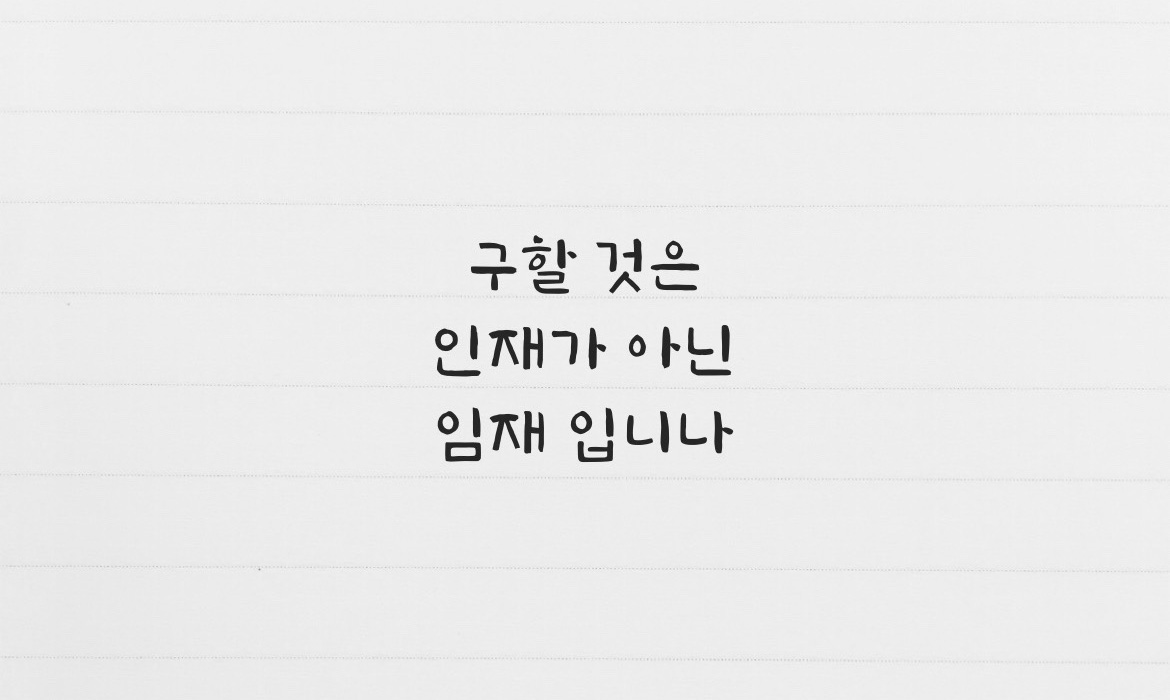 구할 것은
인재가 아닌
임재 입니나